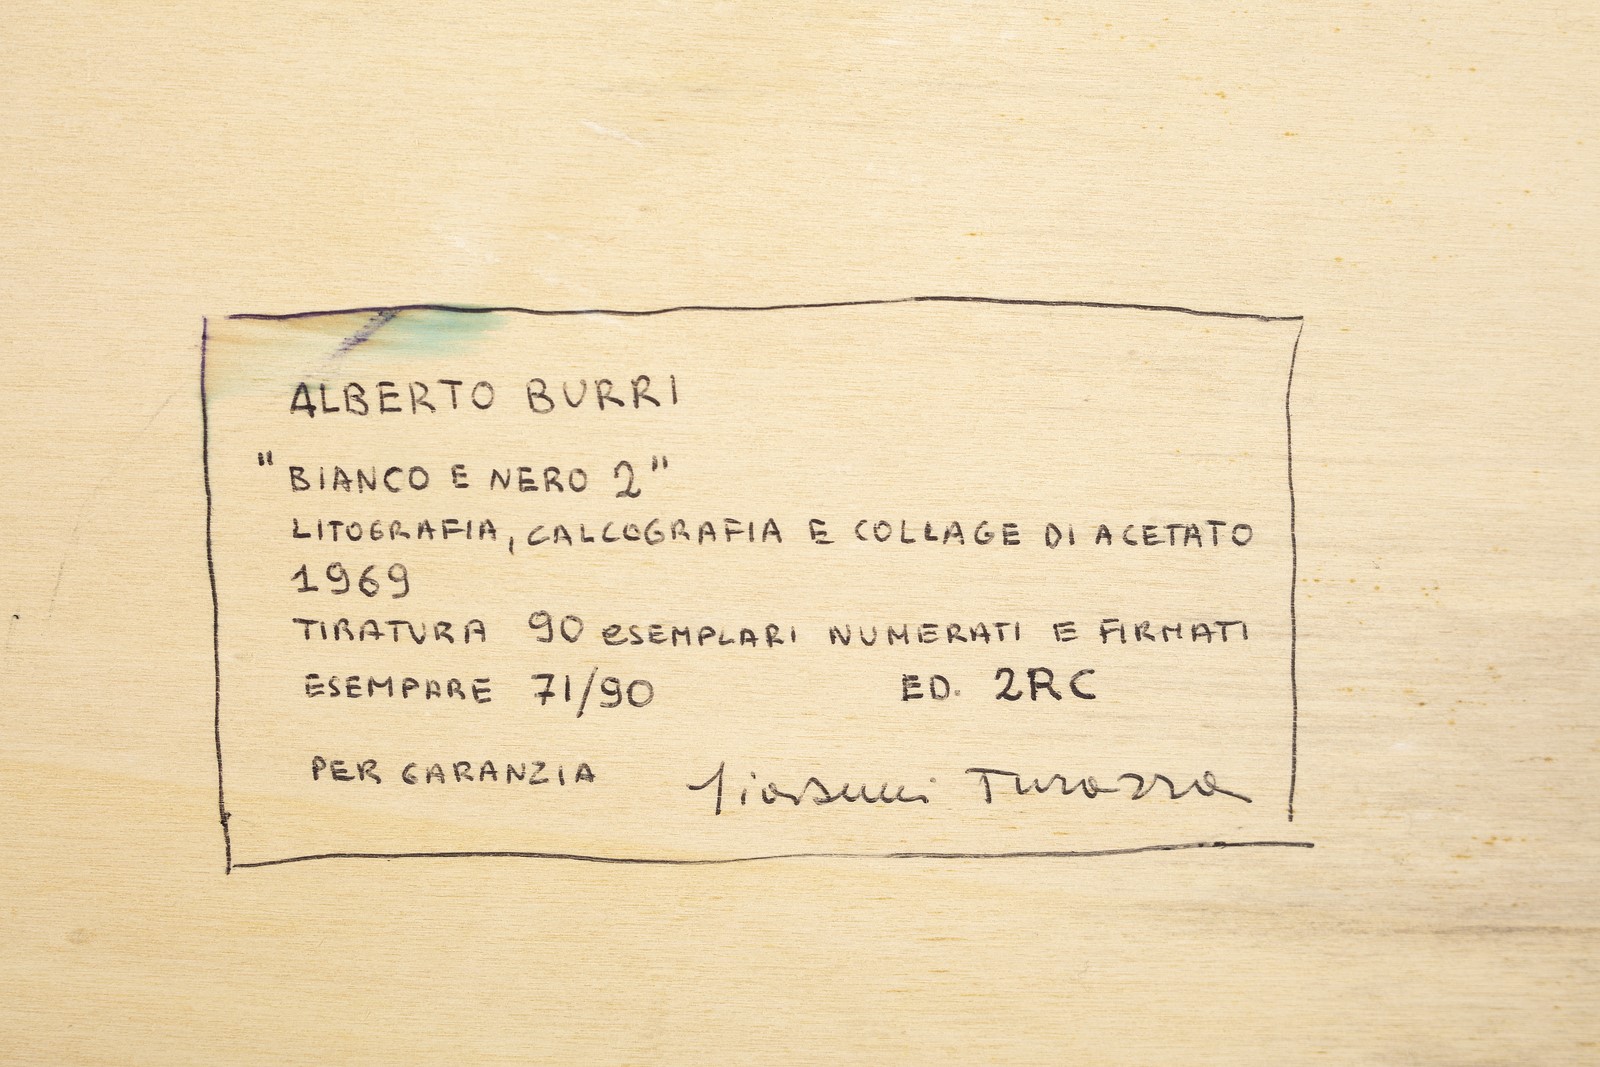 ALBERTO BURRI
"BIANCO E NERO 2"
LITOGRAFIA, CALCOGRAFIA E COLLAGE DI ACETATO
1969
TIRATURA 90 eSEMPLARI NUMERATI E FIRMATI
ESEMPARE 71/90 ED. 2RC
PER GARANZIA Turazza